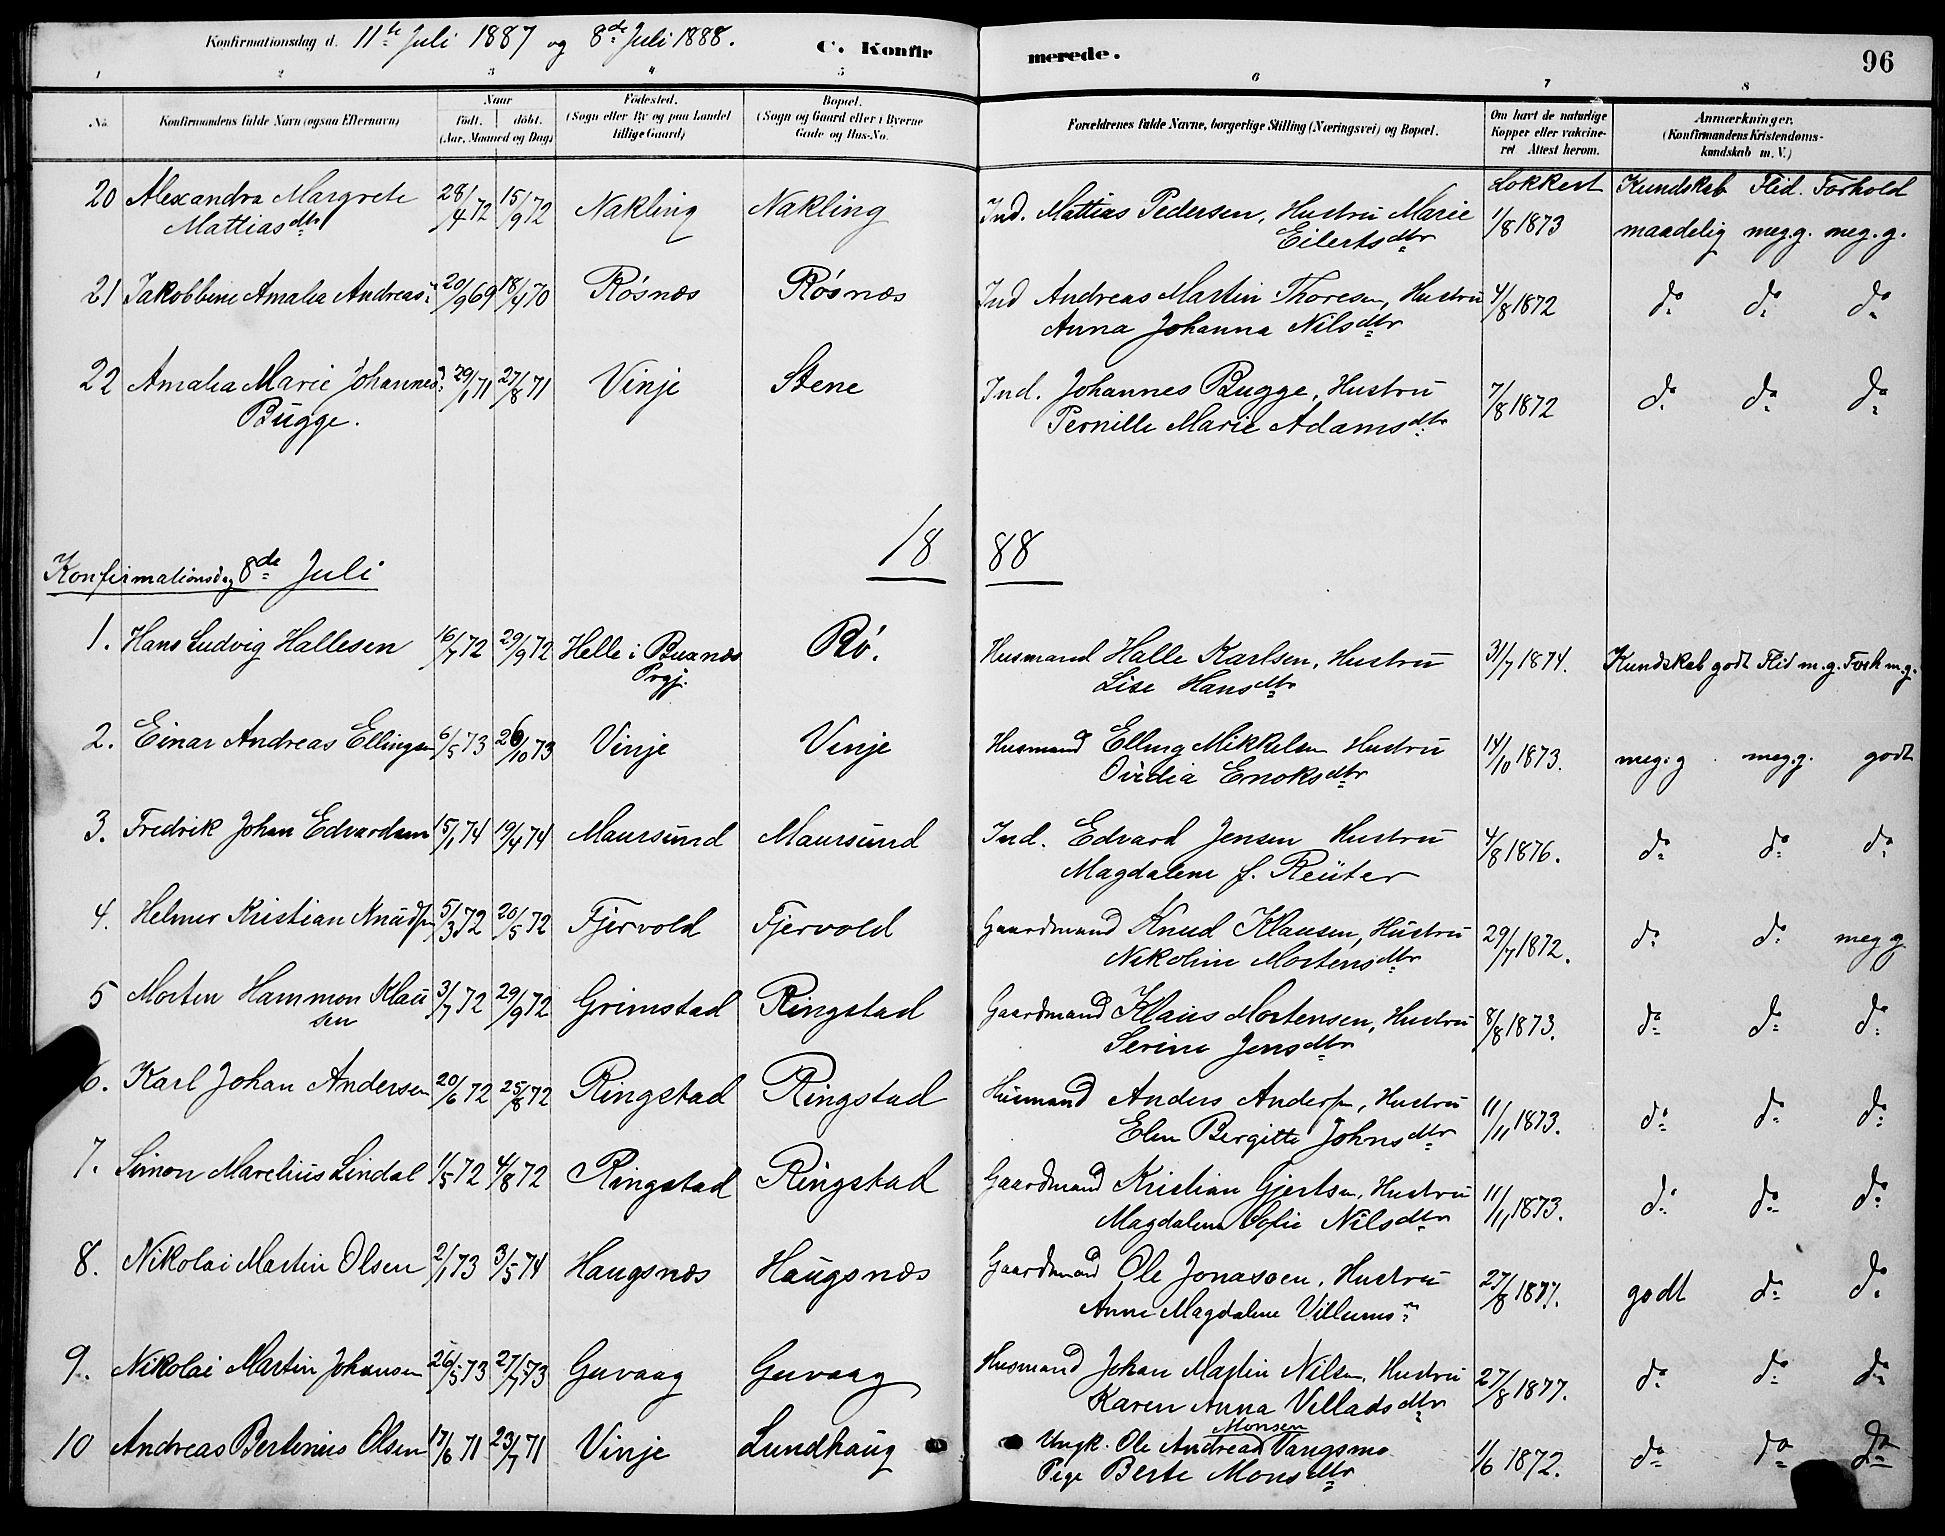 Konfirmationsdag d. 11te Juli 1887 og 8de Juli 1888. C. Konfirmerede. 96
1 2 3 4 5 6 7 8
No. Konfirmandens fulde Navn (ogsaa Efternavn) Naar født. døbt. (Aar, Maaned og Dag) Fødested. (Sogn eller By og paa Landet tillige Gaard) Bopæl. (Sogn og Gaard eller i Byerne Gade og Hus-No. Forældrenes fulde Navne, borgerlige Stilling (Næringsvei) og Bopæl. Om havt de naturlige Kopper eller vakcineret Attest herom. Anmærkninger. (Konfirmandens Kristendomskundskab m. V.)
Kundskab Flid. Forhold
20 Alexandra Margrete 28/4 72 15/9 72 Nakling Nakling Ind. Mattias Pedersen, Hustru Marie 1/8 1873 maadelig meg.g. meg.g.
Mattiasdtr Eilertsdtr
21 Jakobbine Amalia Andreas 20/9 69 18/4 70 Røsnæs Røsnæs Ind Andreas Martin Thoresen, Hustru 4/8 1872 do do do
Anna Johanna Nilsdtr
22 Amalia Marie Johannes 29/1 71 27/8 71 Vinje Stene Ind. Johannes Bugge, Hustru 7/8 1872 do do do
Bugge. Pernille Marie Adamsdtr
1888
Konfirmationsdag 8de Juli
1. Hans Ludvig Hallesen 16/7 72 29/9 72 Helle i Buxnæs Rø. Husmand Halle Karlsen, Hustru 31/7 1874. Kundskab godt Flid m.g. Forh m.g.
Prgj. Lise Hansdtr
2. Einar Andreas Ellingsen 6/5 73 26/10 73 Vinje Vinje Husmand Elling Mikkelsen Hustru 14/10 1873. meg.g. meg.g. godt
Ovidia Enoksdtr
3. Fredrik Johan Edvardsen 15/1 74 19/4 74 Maursund Maursund Ind. Edvard Jensen Hustru 4/8 1876. do do do
Magdalene f. Reuter
4. Helmer Kristian Knudsen 5/3 72 20/5 72 Fjervold Fjervold Gaardmand Knud Klausen, Hustru 29/7 1872. do do meg g.
Nikoline Mortensdtr
5 Morten Hammon Klau 3/7 72 29/9 72 Grimstad Ringstad Gaardmand Klaus Mortensen, Hustru 8/8 1873. do do do
sen Serine Jensdtr
6. Karl Johan Andersen 20/6 72 25/8 72 Ringstad Ringstad Husmand Anders Andersen, Hustru 11/11 1873. do do do
Elen Bergitte Johnsdtr
7. Simon Marelius Lindal 11/5 72 4/8 72 Ringstad Ringstad Gaardmand Kristian Gjertsen, Hustru 11/11 1873. do do do
Magdalena Sofie Nilsdtr
8. Nikolai Martin Olsen 2/1 73 3/5 74 Haugsnæs Haugsnæs Gaardmand Ole Jonassen, Hustru 27/8 1877. godt do do
Anne Magdalene Villums
9. Nikolai Martin Johansen 26/5 73 27/7 73 Guvaag Guvaag Husmand Johan Martin Nilsen, Hustru 27/8 1877. do do do
Karen Anna Villadsdtr
Monsen
10 Andreas Bertinius Olsen 17/6 71 23/7 71 Vinje Lundhaug Ungk. Ole Andreas Vangsmo 1/6 1872. do do do
Pige Berte Monsdtr